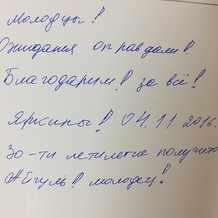 Молодцы!
Ожидания оправдали!
Благодарим! за всё!
04.11.2016
30-ти летилетие получило
Жигуль! молодец!